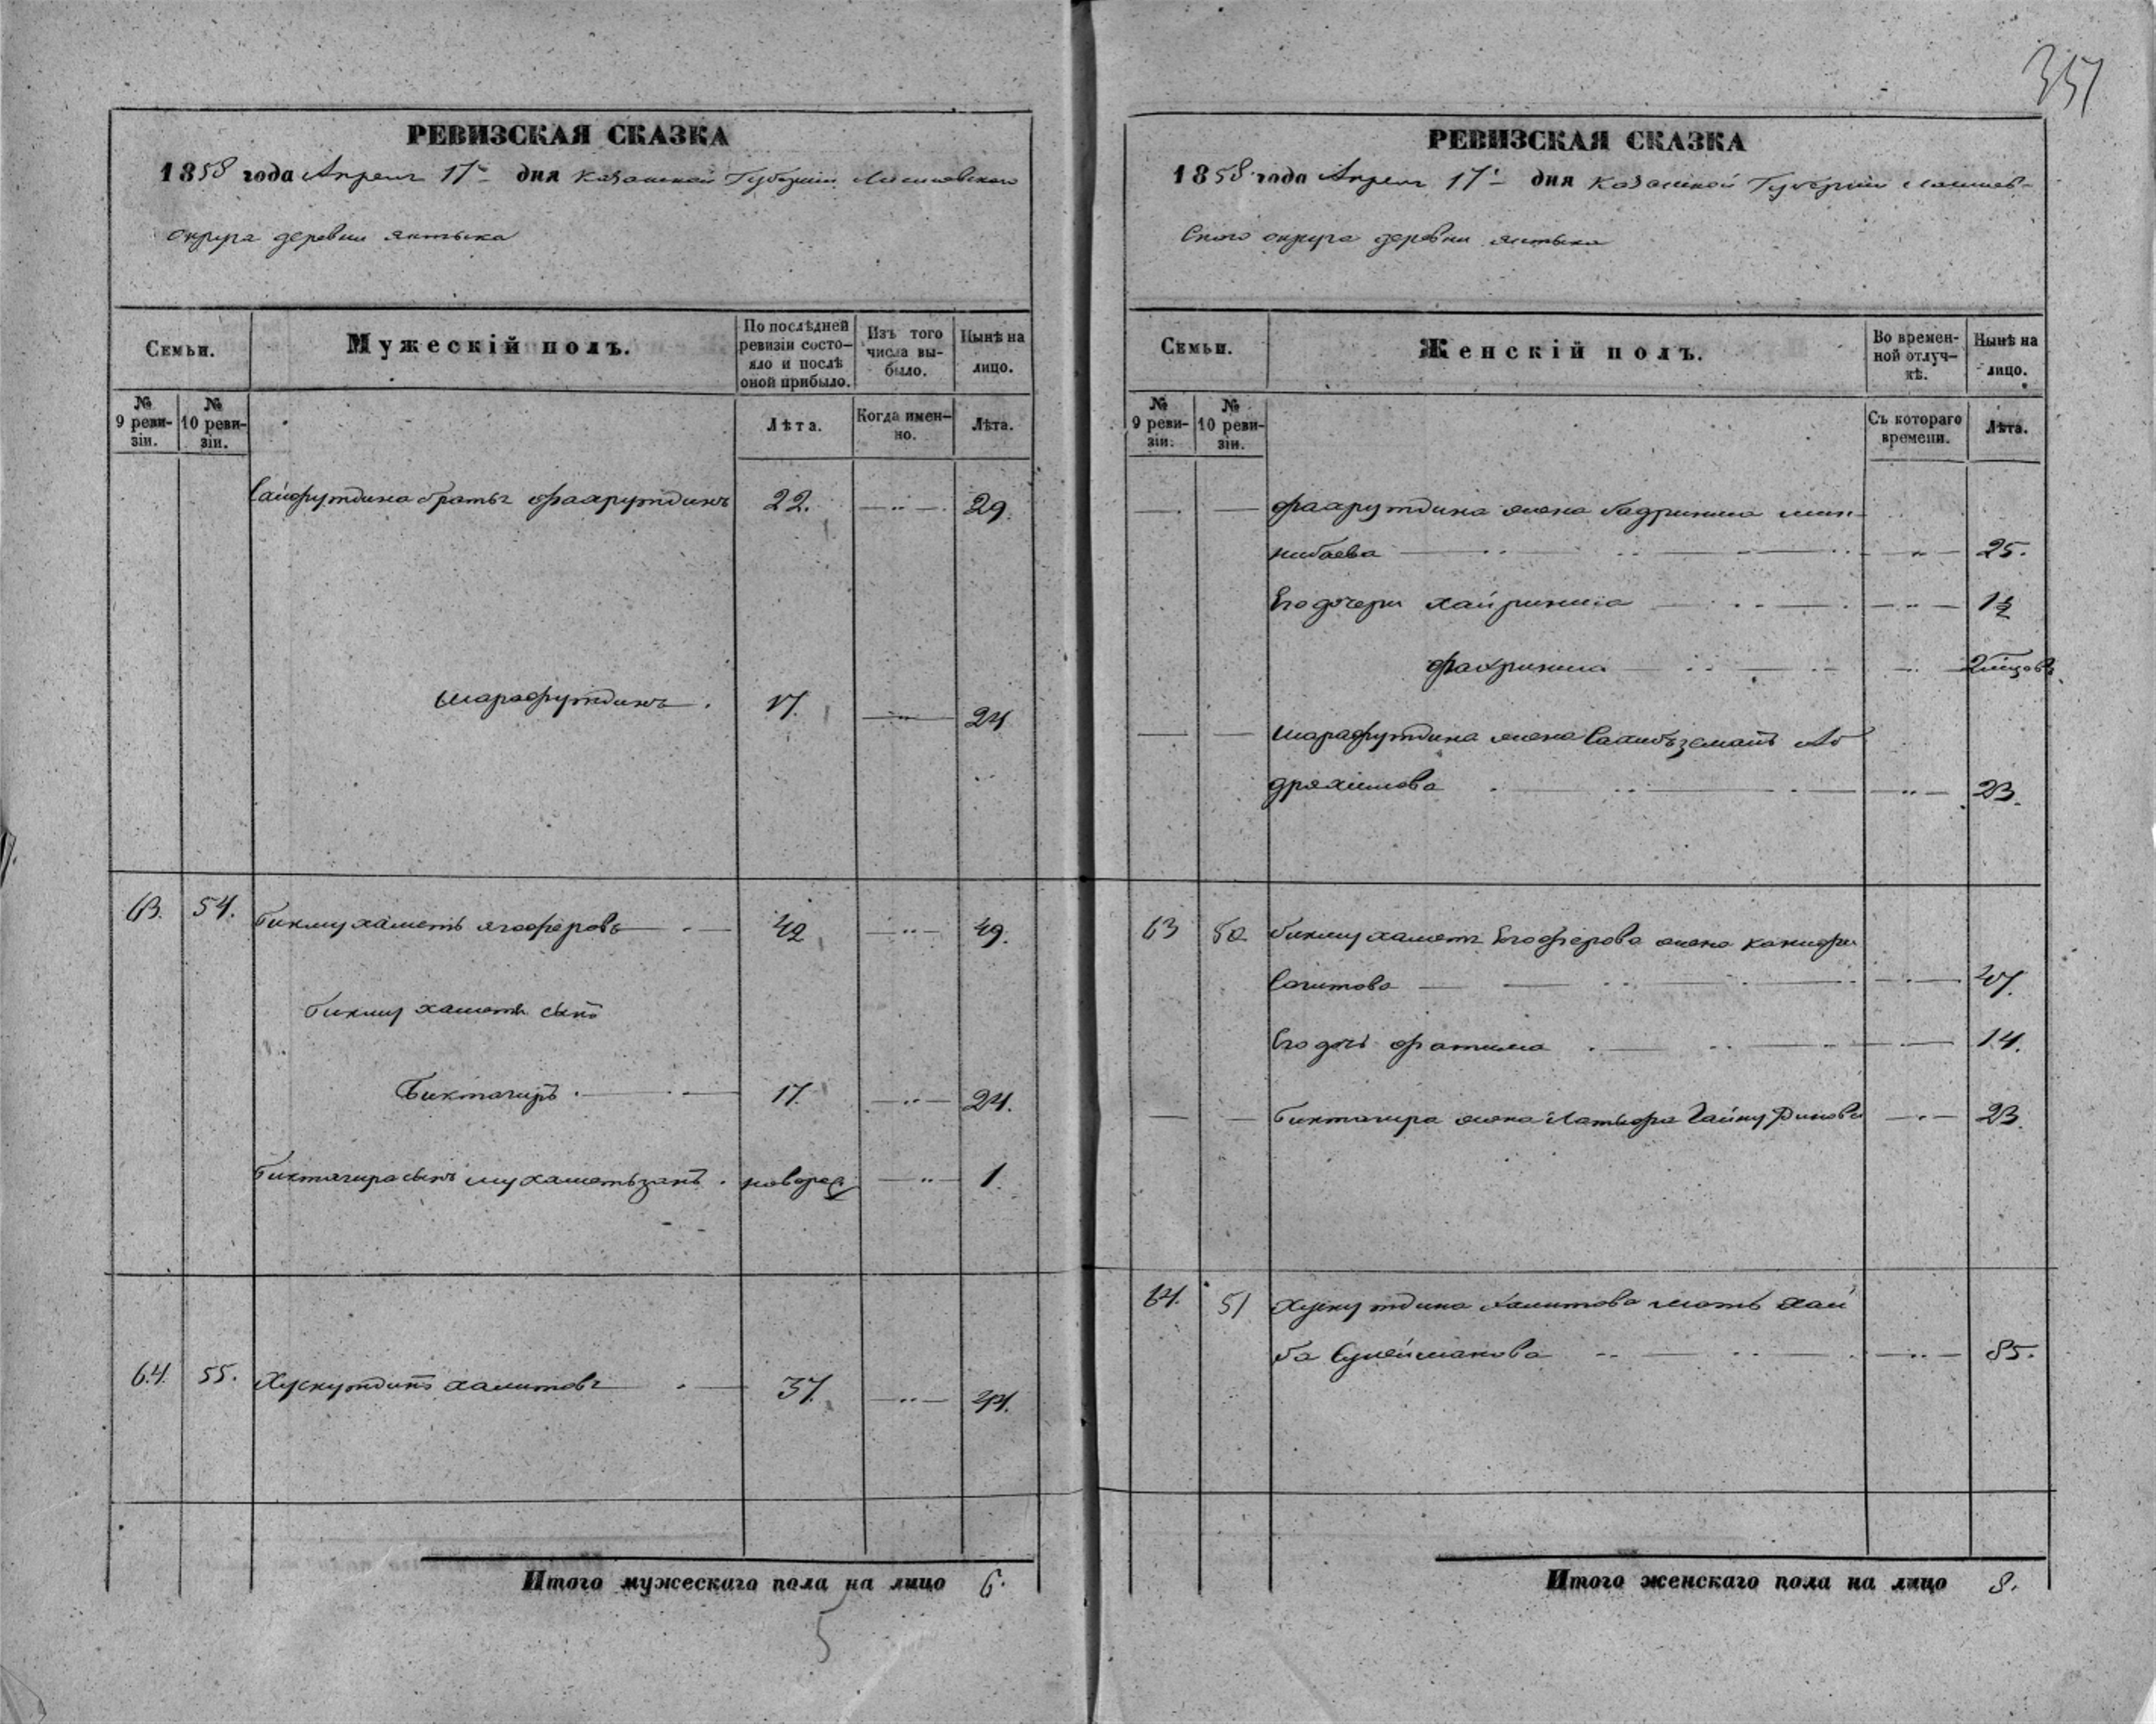 351
РЕВИЗСКАЯ СКАЗКА
1858 года Апреля 17 дня Казанской Губернии Лаишевского
округа деревни Янтыка
Семьи.
Мужескій полъ.
По послѣдней
ревизіи состо-
яло и послѣ
оной прибыло.
Изъ того
числа вы-
было.
Нынѣ на
лицо.
№
9 реви-
зіи.
№
10 реви-
зіи.
Лѣта.
Когда имен-
но.
Лѣта.
Сайфутдина братья Фахрутдинъ 22. 29.
Шарафутдинъ 17. 24
63. 54. Бикмухаметь Ягоферовъ 42 49.
Бикмухаметя сынъ
Биктагиръ 17. 24.
Биктагира сынъ Мухаметьзянъ новорож 1.
64. 55. Хуснутдинъ Хамитовъ 37. 44.
Итого мужескаго пола на лицо 6.
5
РЕВИЗСКАЯ СКАЗКА
1858 года Апреля 17 дня Казанской Губернии Лаишев-
скаго округа деревни Янтыка
Семьи.
Женскій полъ.
Во времен-
ной отлуч-
кѣ.
Нынѣ на
лицо.
№
9 реви-
зіи.
№
10 реви-
зіи.
Съ котораго
времени.
Лѣта.
Фахрутдина жена Бадриниса Мин-
нибаева 25.
Его дочери Хайриниса 1½
Фахриниса 2 месцовъ
Шарафутдина жена Сахибзямалъ Аб
дряхимова 23.
63 50 Бикмухаметя Егоферова жена Ханифа
Сагитова 47.
Его дочь Фатима 14.
Биктагира жена Латыфа Гайнутдинова 23.
64. 51 Хуснутдина Хамитова мать Хаби
ба Сулейманова 85.
Итого женскаго пола на лицо 8.